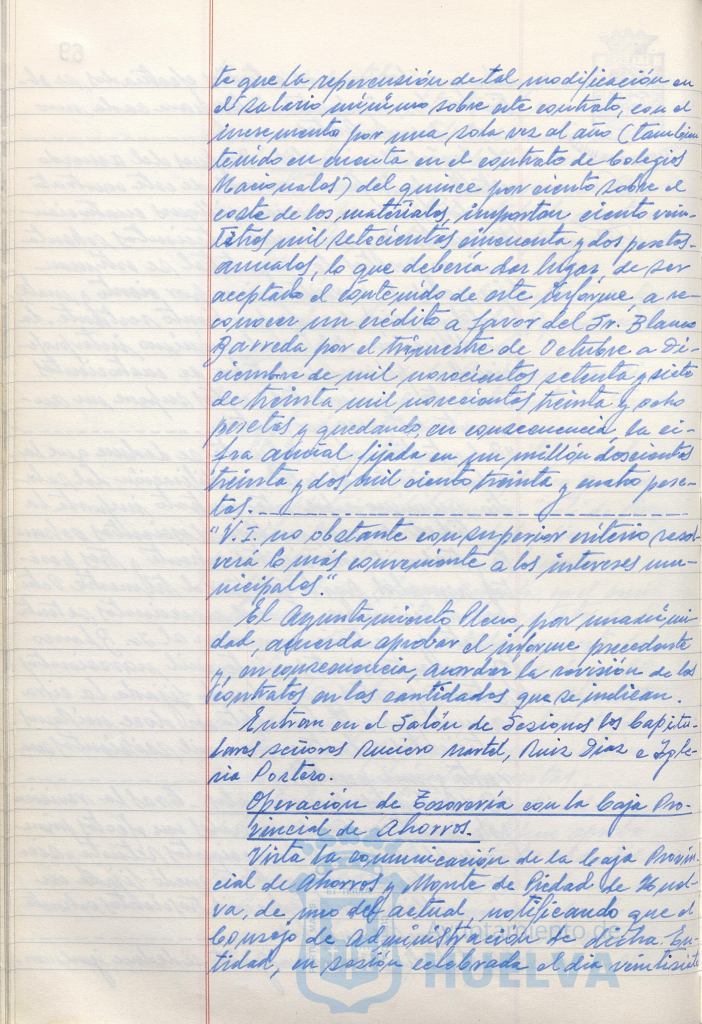 te que la repercusión de tal modificación en
el salario mínimo sobre este contrato, con el
incremento por una sola vez al año (también
tenido en cuenta en el contrato de Colegios
Nacionales) del quince por ciento sobre el
coste de los materiales, importan ciento vein-
titres mil setecientas cincuenta y dos pesetas
anuales, lo que debería dar lugar, de ser
aceptado el contenido de este informe, a re-
conocer un crédito a favor del Sr. Blanco
Barreda por el trimestre de Octubre a Di-
ciembre de mil novecientos setenta y siete
de treinta mil novecientas treinta y ocho
pesetas y quedando, en consecuencia, la ci-
fra anual fijada en un millón doscientas
treinta y dos mil ciento treinta y cuatro pese-
tas.
"V.I. no obstante con superior criterio resol-
verá lo más conveniente a los intereses mu-
nicipales."
El Ayuntamiento Pleno, por unanimi-
dad, acuerda aprobar el informe precedente
y, en consecuencia, acordar la revisión de los
contratos en las cantidades que se indican.
Entran en el Salón de Sesiones los Capitu-
lares señores Suciero Martel, Ruiz Diaz e Igle-
sia Postero.
Operación de Tesorería con la Caja Pro-
vincial de Ahorros.
Vista la comunicación de la Caja Provin-
cial de Ahorros y Monte de Piedad de Huel-
va, de mes del actual, notificando que el
Consejo de Administración de dicha En-
tidad, en sesión celebrada el día veintisiete
Ayuntamiento de
HUELVA